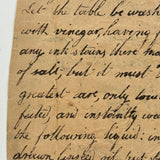 Let the table be wash
with vinegar, having f
any ink stains there ma
of salt; but it must
greatest are only
and instantly
the following liquid: in